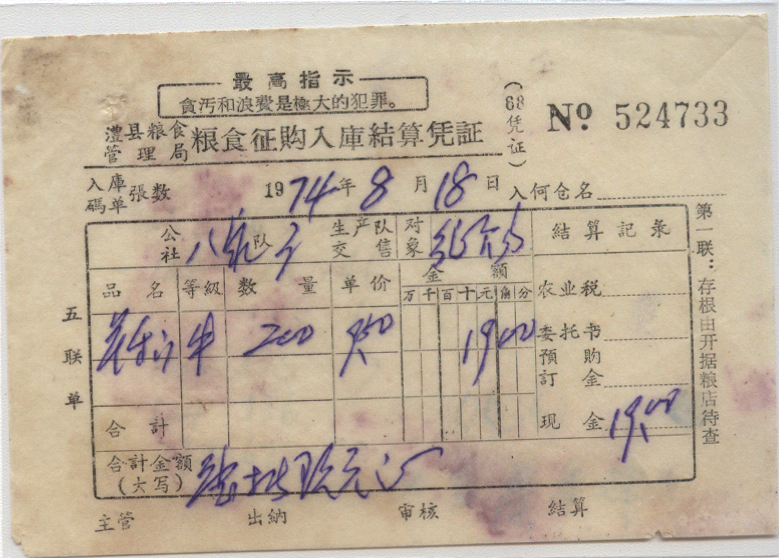 最高指示
貪污和浪費是極大的犯罪。
澧县粮食管理局 粮食征购入庫結算凭証 (68凭证) № 524733
入庫碼单張数 1974年8月18日 入何仓名
公社 队 生产队交售 对象 結算記录
品名 等級 数量 单价 金額 农业税
万千百十元角分
200 9.50 1900 委托书
預購訂金
合計 现金 19.00
合計金額(大写)
主管 出納 审核 結算
五联单
第一联：存根由开据粮店待查